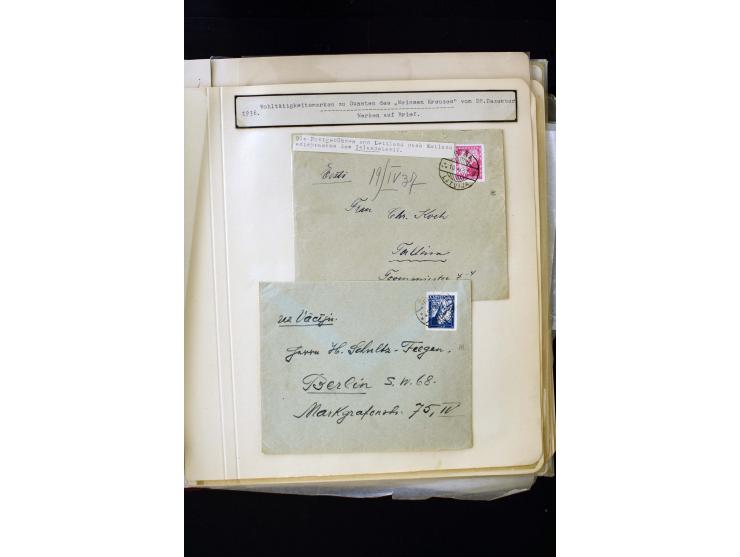 Wohltätigkeitsmarken zu Gunsten des „Weissen Kreuzes" vom 28.Dezember
1936.
Marken auf Brief.
Die Postgebühren von Lettland nach Estland
entsprechen dem Inlandstarif.
Eesti
19/IV 37
LATVIJA
Frau Chr. Koch
Tallinn
uz Vāciju.
Herrn H. Schultz-
Berlin S.W. 68.
Markgrafenstr. 75, IV